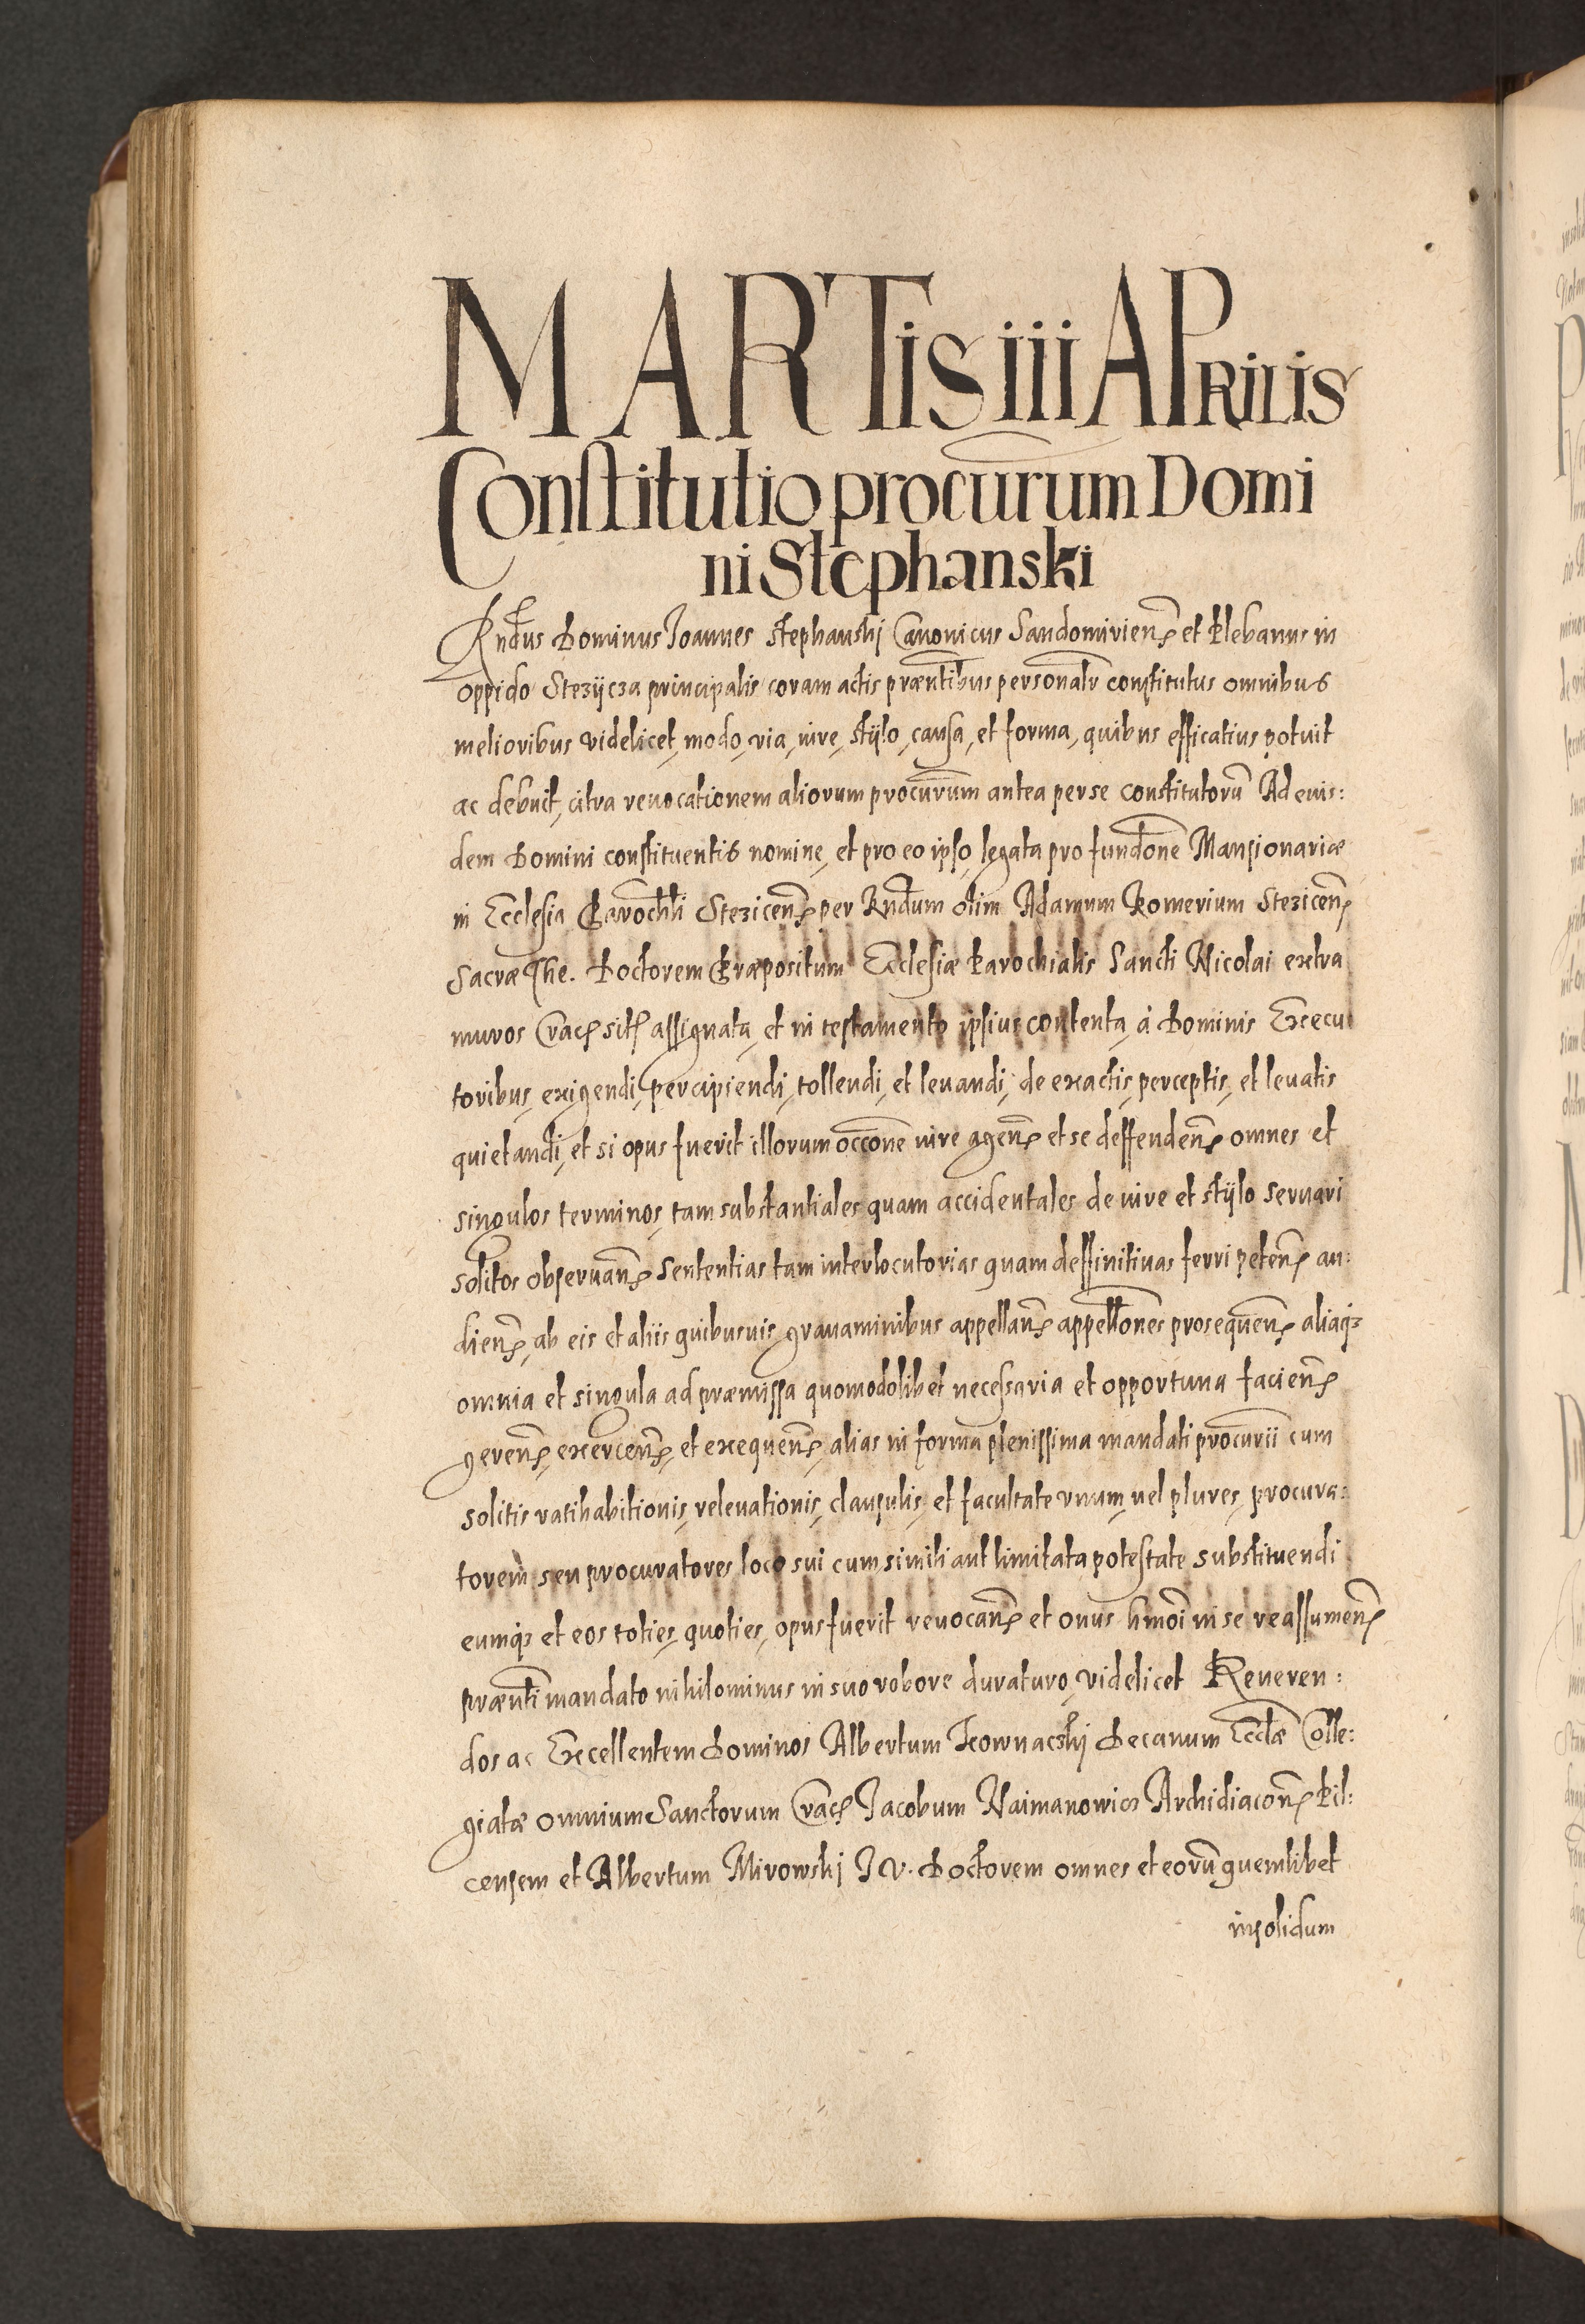 MARTis iii APRILIS
Constitutio procur̃um Domi
ni Stephanski
Rndus Dominus Joannes Stephanskj Canonicus Sandomirieñ et Plebanus in
oppido Stezijcza principalis coram actis præntibus personalr constitutus omnibus
melioribus videlicet, modo, via, iure, stÿlo, causa, et forma, quibus efficatius potuit
ac debuit, citra reuocationem aliorum procur̃um antea per se constitutorũ Ad eius:
dem Domini constituentis nomine, et pro eo ipso, legata pro fundone Mansionariæ
in Ecclesia Parochli Steziceñ per Rndum olim Adamum Romerium Steziceñ
Sacræ The. Doctorem Præpositum Ecclesiæ Parochialis Sancti Nicolai extra
muros Crac sit assignata, et in testamento ipsius contenta, à Dominis Execu
toribus, exigendi, percipiendi, tollendi, et leuandi, de exactis, perceptis, et leuatis
quietandi, et si opus fuerit illorum occone iure ageñ et se deffendeñ omnes et
singulos terminos, tam substantiales quam accidentales de iure et stÿlo seruari
solitos obseruañ Sententias tam interlocutorias quam deffinitiuas ferri peteñ au:
dieñ, ab eis et aliis quibusuis grauaminibus appellañ appellones prosequeñ aliaqȝ
omnia et singula ad præmissa quomodolibet necessaria et opportuna facieñ
gereñ, exerceñ, et exequeñ, alias in forma plenissima mandati procurii cum
solitis ratihabitionis, releuationis, clausulis, et facultate vnum, uel plures, procura:
torem seu procuratores loco sui cum simili aut limitata potestate substituendi
eumqȝ et eos toties, quoties, opus fuerit reuocañ et onus hmoi in se reassumeñ
prænti mandato nihilominus in suo robore duraturo, videlicet Reueren:
dos ac Excellentem Dominos Albertum Kownaczkj Decanum Ecclæ Colle:
giatæ omnium Sanctorum Crac Jacobum Naimanowicz Archidiacoñ Pil:
censem et Albertum Mirowskj J V. Doctorem omnes et eorũ quemlibet
insolidum